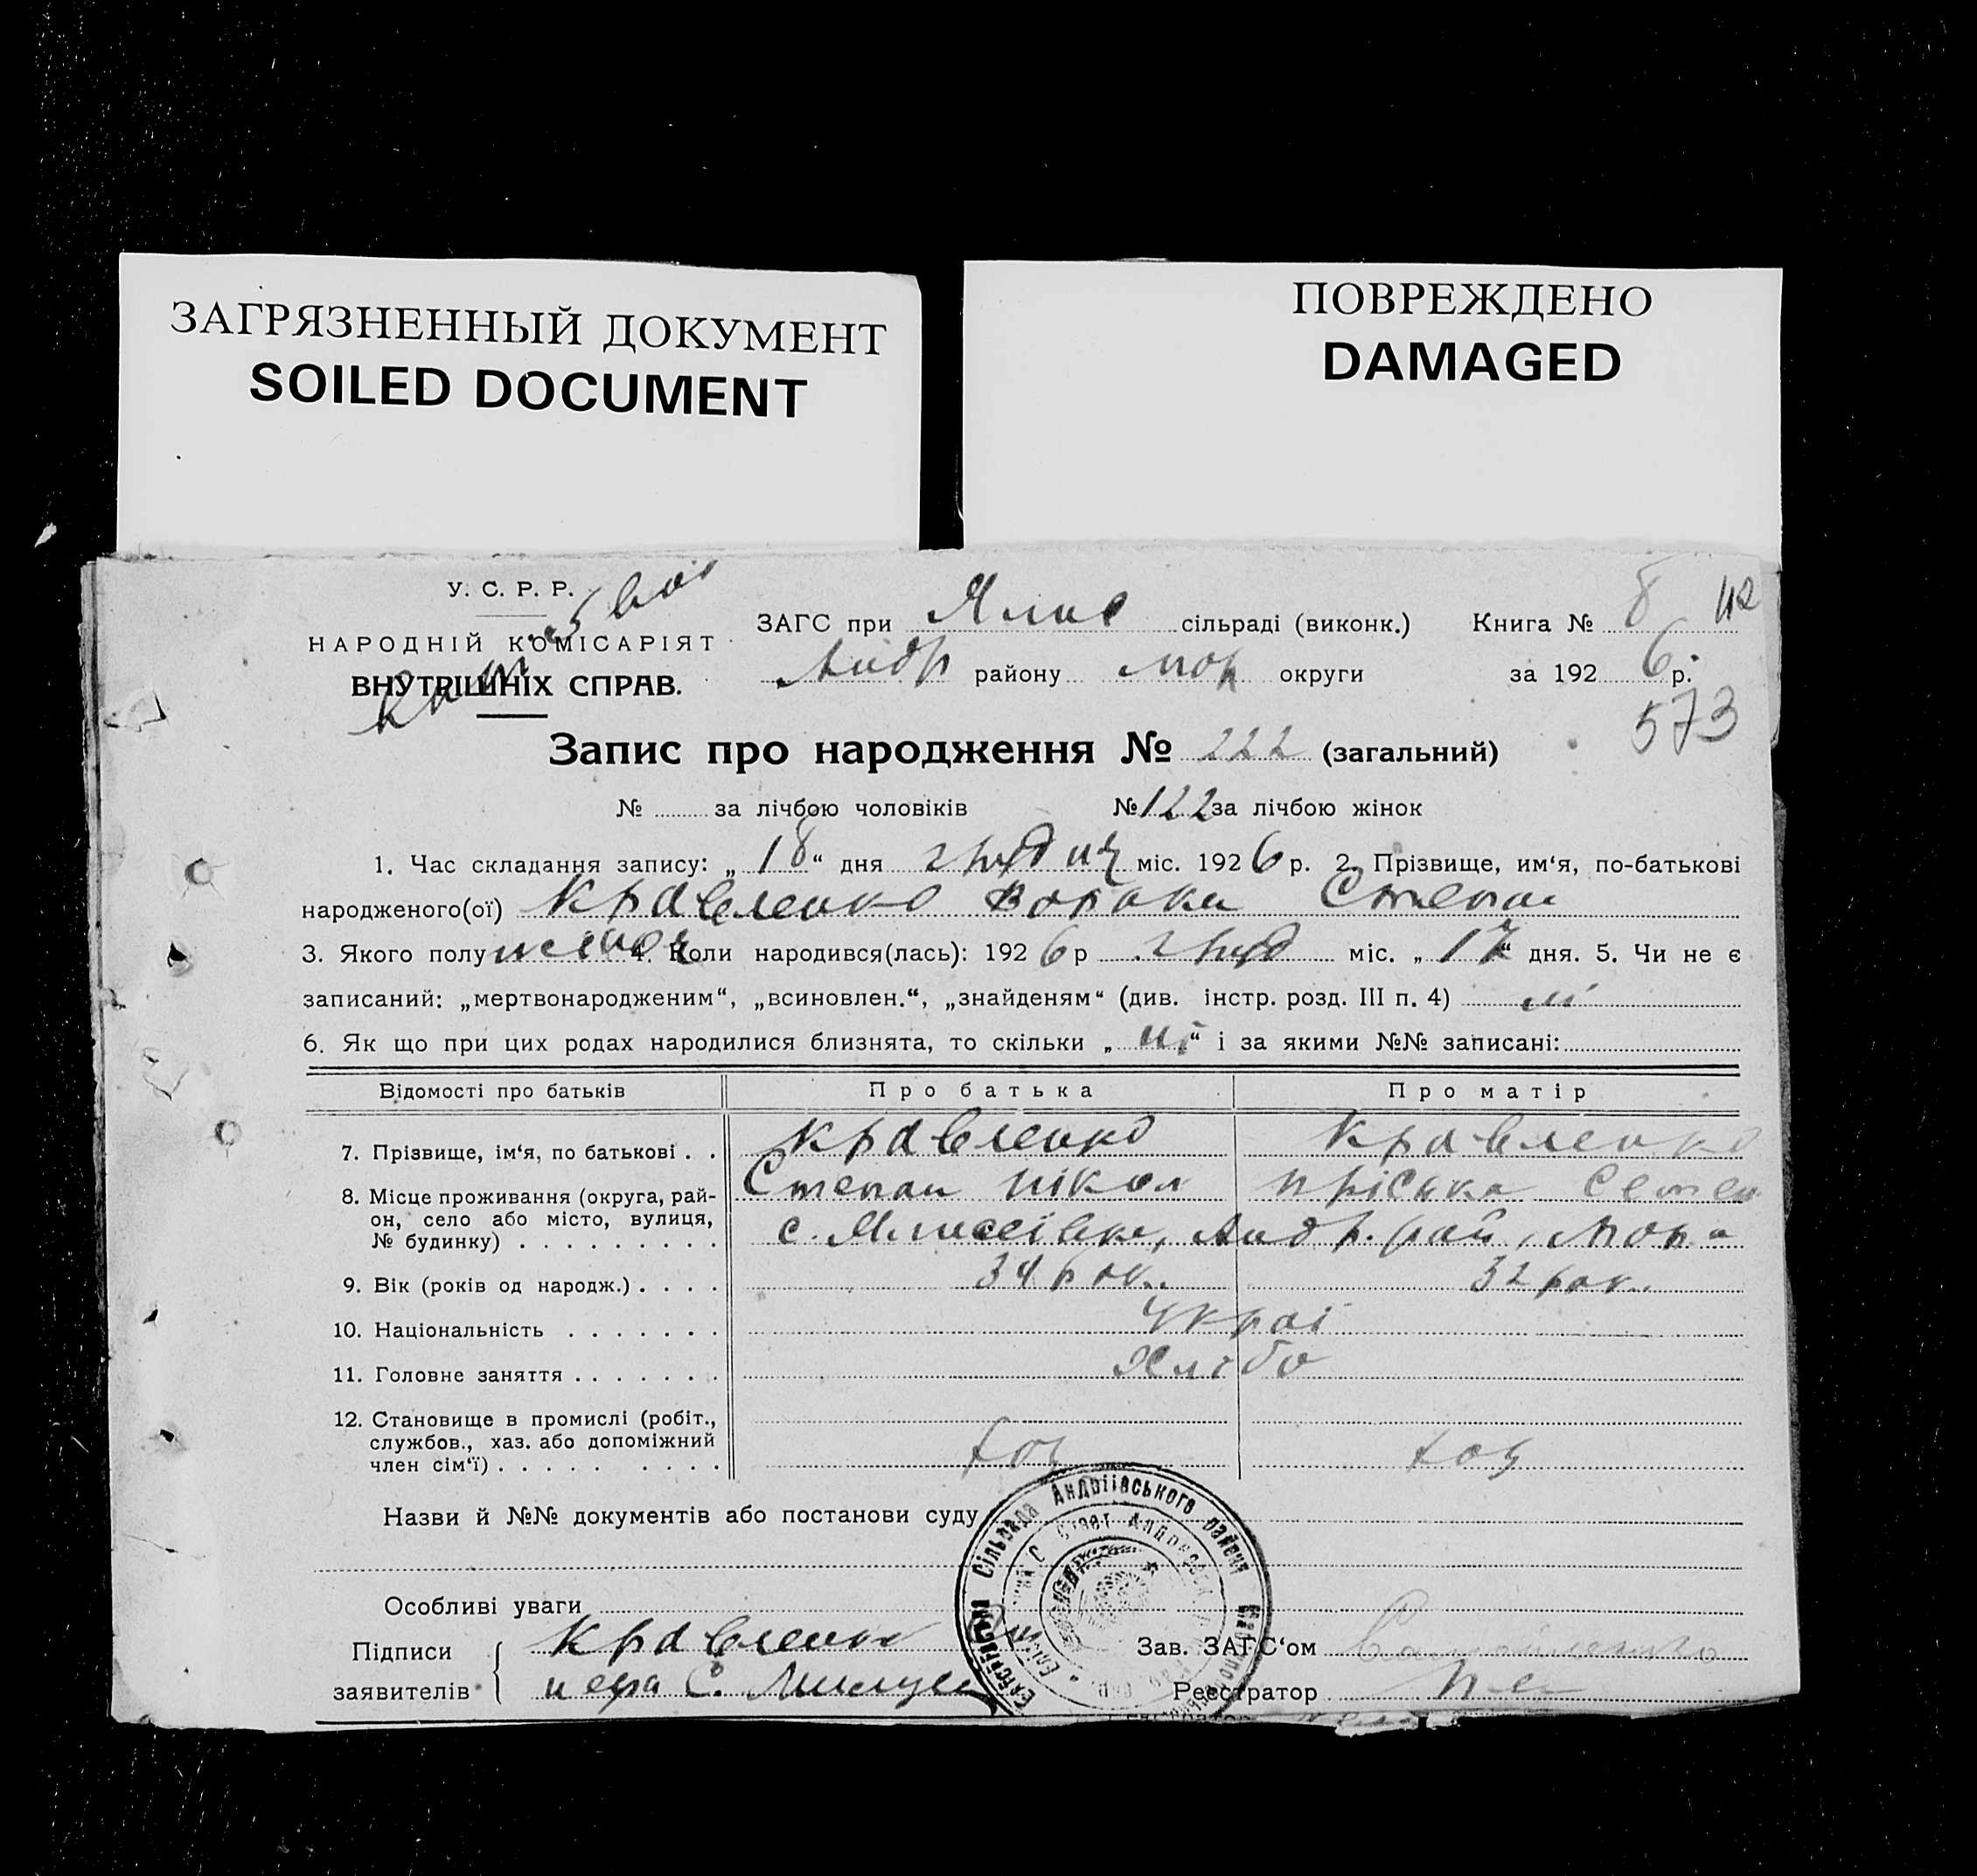 ЗАГРЯЗНЕННЫЙ ДОКУМЕНТ
SOILED DOCUMENT
ПОВРЕЖДЕНО
DAMAGED
У. С. Р. Р.
НАРОДНІЙ КОМІСАРІЯТ
ВНУТРІШНІХ СПРАВ.
ЗАГС при сільраді (виконк.) Книга № 8 112
Андр району округи за 1926 р.
573
Запис про народження № 222 (загальний)
№ за лічбою чоловіків № 122 за лічбою жінок
1. Час складання запису: „18“ дня грудня міс. 1926 р. 2. Прізвище, им‘я, по-батькові
народженого(ої) Кравленко Степан
3. Якого полу жіноч 4. Коли народився(лась): 1926 р груд міс. „17“ дня. 5. Чи не є
записаний: „мертвонародженим“, „всиновлен.“, „знайденям“ (див. інстр. розд. III п. 4) ні
6. Як що при цих родах народилися близнята, то скільки „ні“ і за якими №№ записані:
Відомості про батьків Про батька Про матір
7. Прізвище, ім‘я, по батькові . . Кравленко Кравленко
8. Місце проживання (округа, рай- Степан Нікол Пріська Семен
он, село або місто, вулиця,
№ будинку) . . . . . . . . . Андр. рай,
9. Вік (років од народж.) . . . . 34 рок. 32 рок.
10. Національність . . . . . . . Украі
11. Головне заняття . . . . . . . Хлібо
12. Становище в промислі (робіт.,
службов., хаз. або допоміжний
член сім‘ї) . . . . . . . . . хоз хоз
Назви й №№ документів або постанови суду
Сільрада Андріївського району
Особливі уваги
Підписи Кравленко Зав. ЗАГС‘ом
заявителів Реєстратор